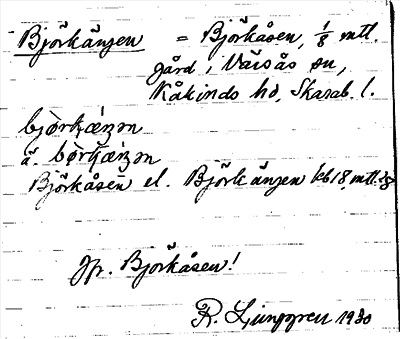 Björkängen = Björkåsen, 1/8 mtl.
gård i Värsås sn,
Kåkinds hd, Skarab. l.
bjòrkæ̀ŋən
ä. bòrkæ̀ŋən
Björkåsen el. Björkängen 1/8 mtl.
Jfr. Björkåsen!
R. Ljunggren 1930